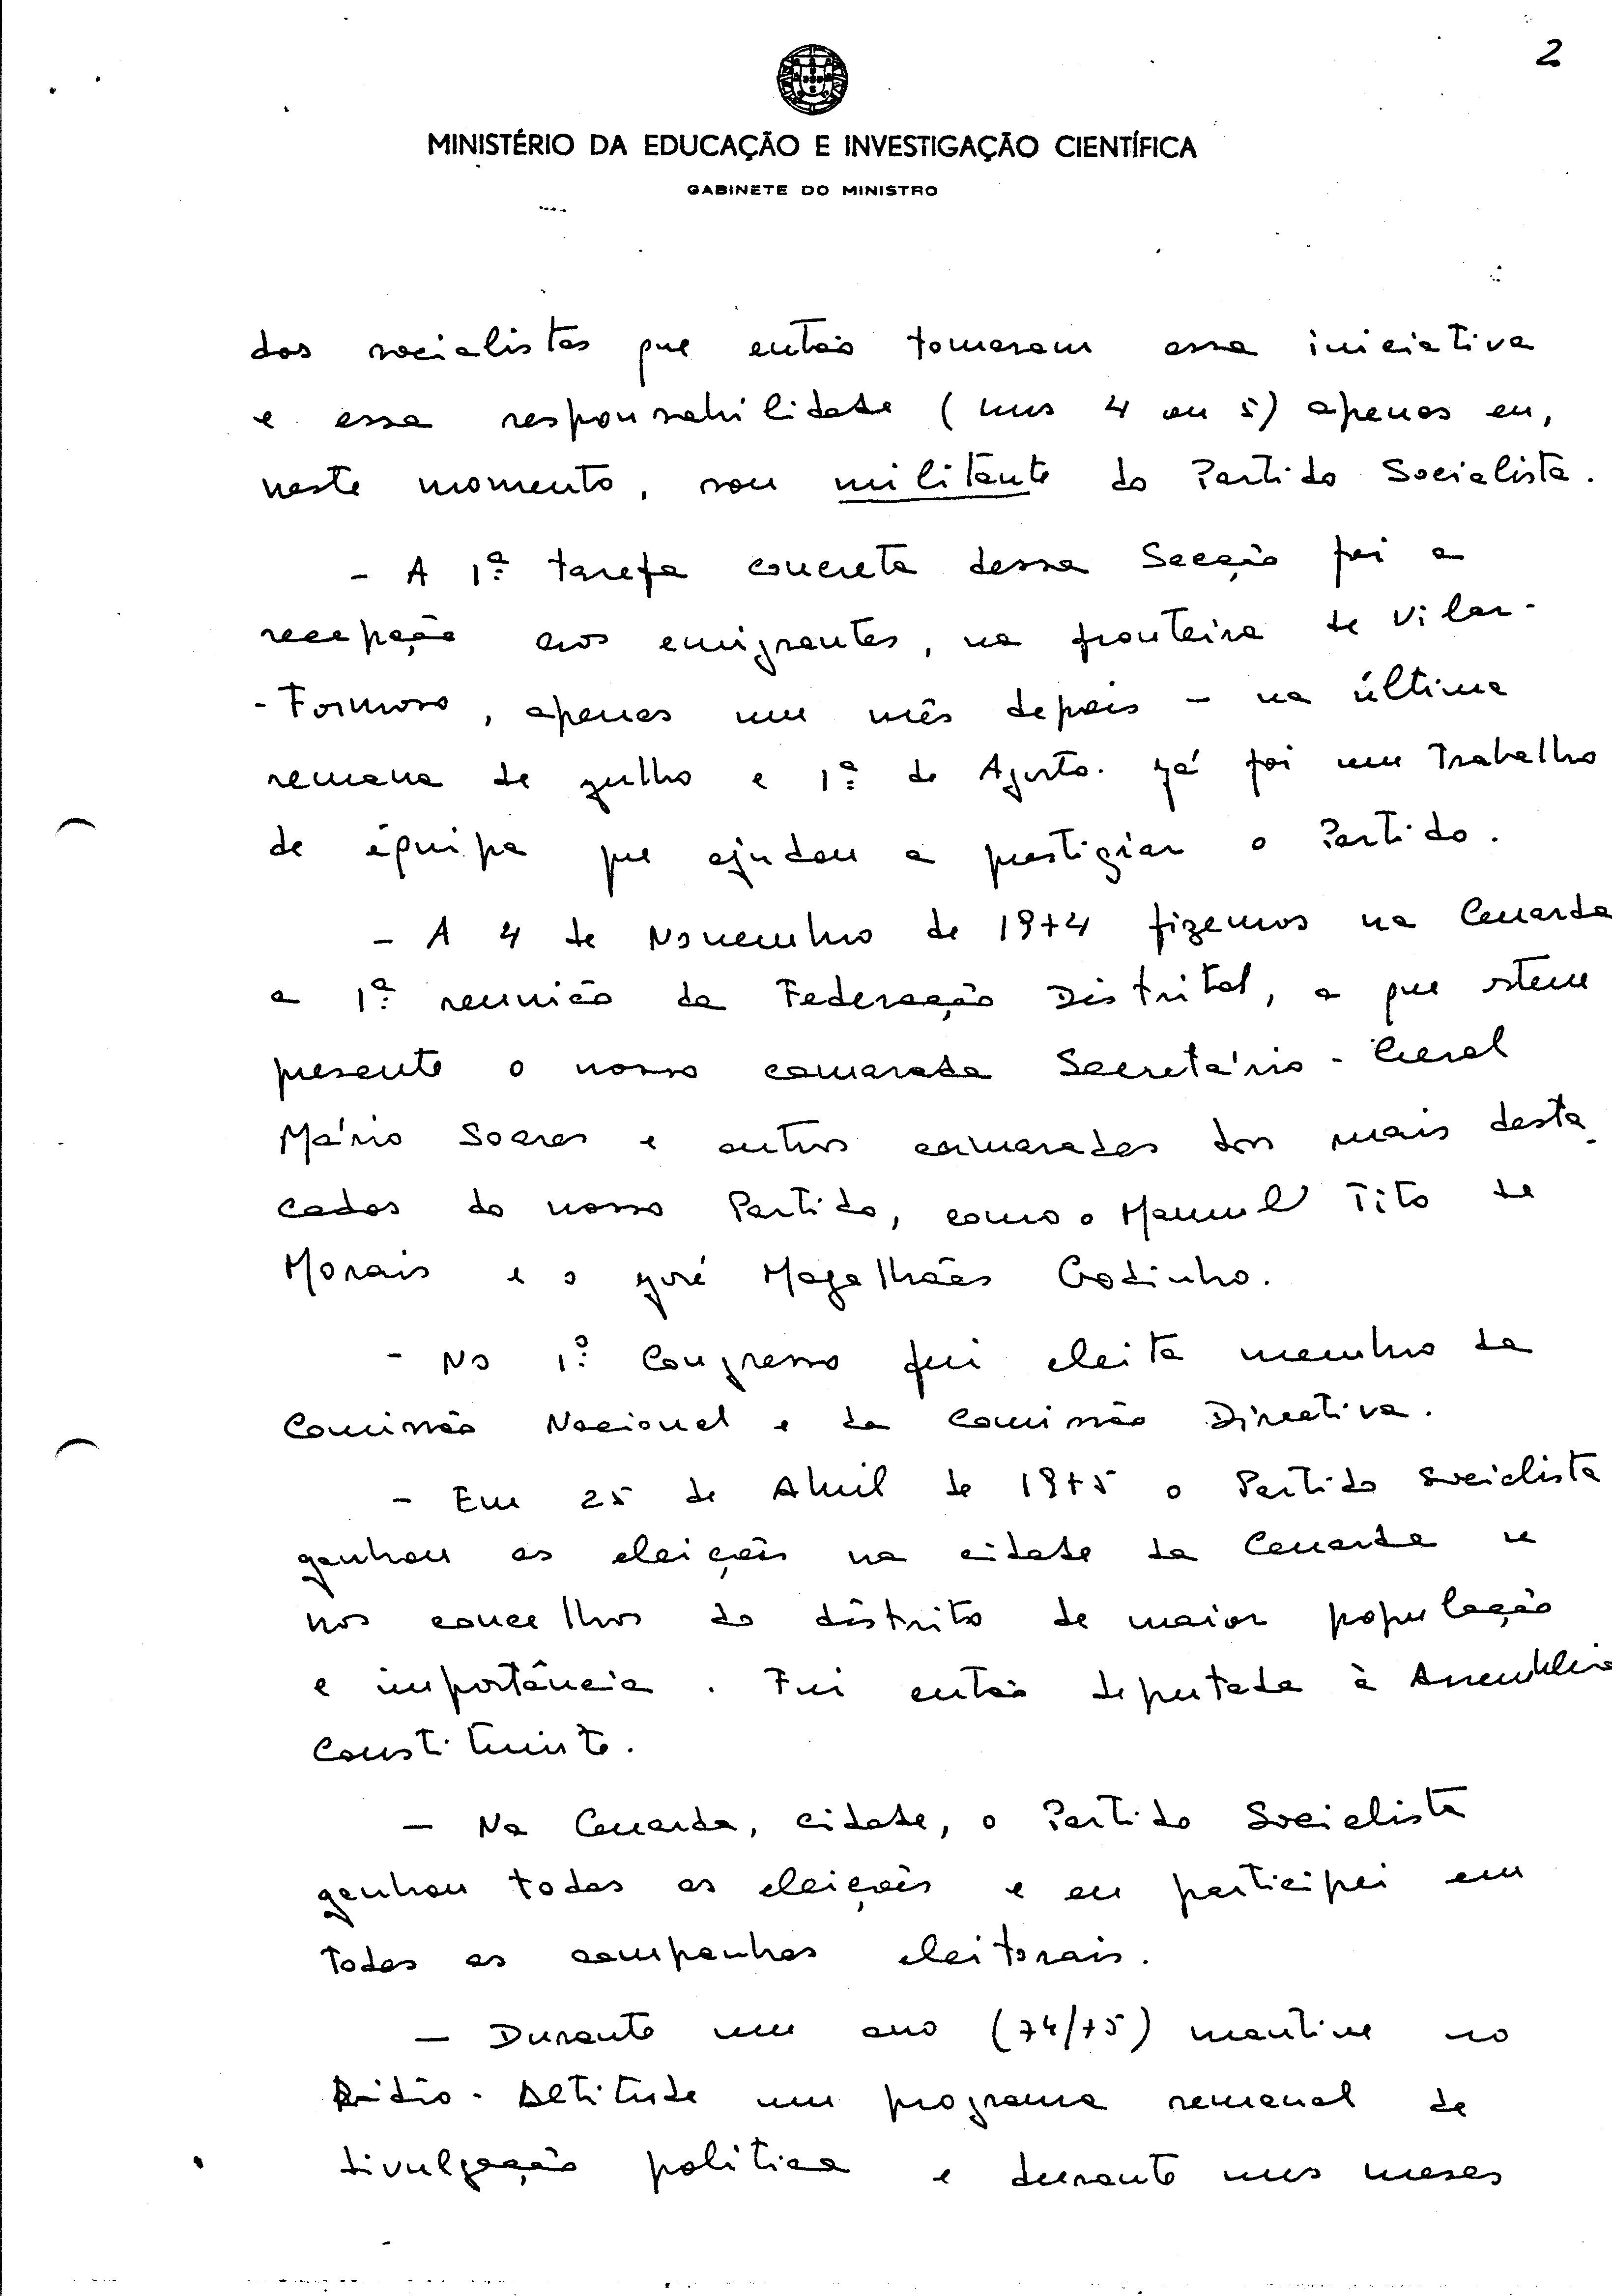 2
MINISTÉRIO DA EDUCAÇÃO E INVESTIGAÇÃO CIENTÍFICA
GABINETE DO MINISTRO
dos socialistas que então tomaram essa iniciativa
e essa responsabilidade (uns 4 ou 5) apenas eu,
neste momento, sou militante do Partido Socialista.
- A 1ª tarefa concreta dessa Secção foi a
recepção aos emigrantes, na fronteira de Vilar-
-Formoso, apenas um mês depois - na última
semana de Julho e 1ª de Agosto. Já foi um trabalho
de équipa que ajudou a prestigiar o Partido.
- A 4 de Novembro de 1974 fizemos na Guarda
a 1ª reunião da Federação Distrital, a que esteve
presente o nosso camarada Secretário-Geral
Mário Soares e outros camaradas dos mais desta-
cados do nosso Partido, como o Manuel Tito de
Morais e o José Magalhães Godinho.
- No 1º Congresso fui eleita membro da
Comissão Nacional e da Comissão Directiva.
- Em 25 de Abril de 1975 o Partido Socialista
ganhou as eleições na cidade da Guarda e
nos concelhos do distrito de maior população
e importância. Fui então deputada à Assembleia
Constituinte.
- Na Guarda, cidade, o Partido Socialista
ganhou todas as eleições e eu participei em
todas as campanhas eleitorais.
- Durante um ano (74/75) mantive no
Rádio-Altitude um programa semanal de
divulgação política e durante uns meses